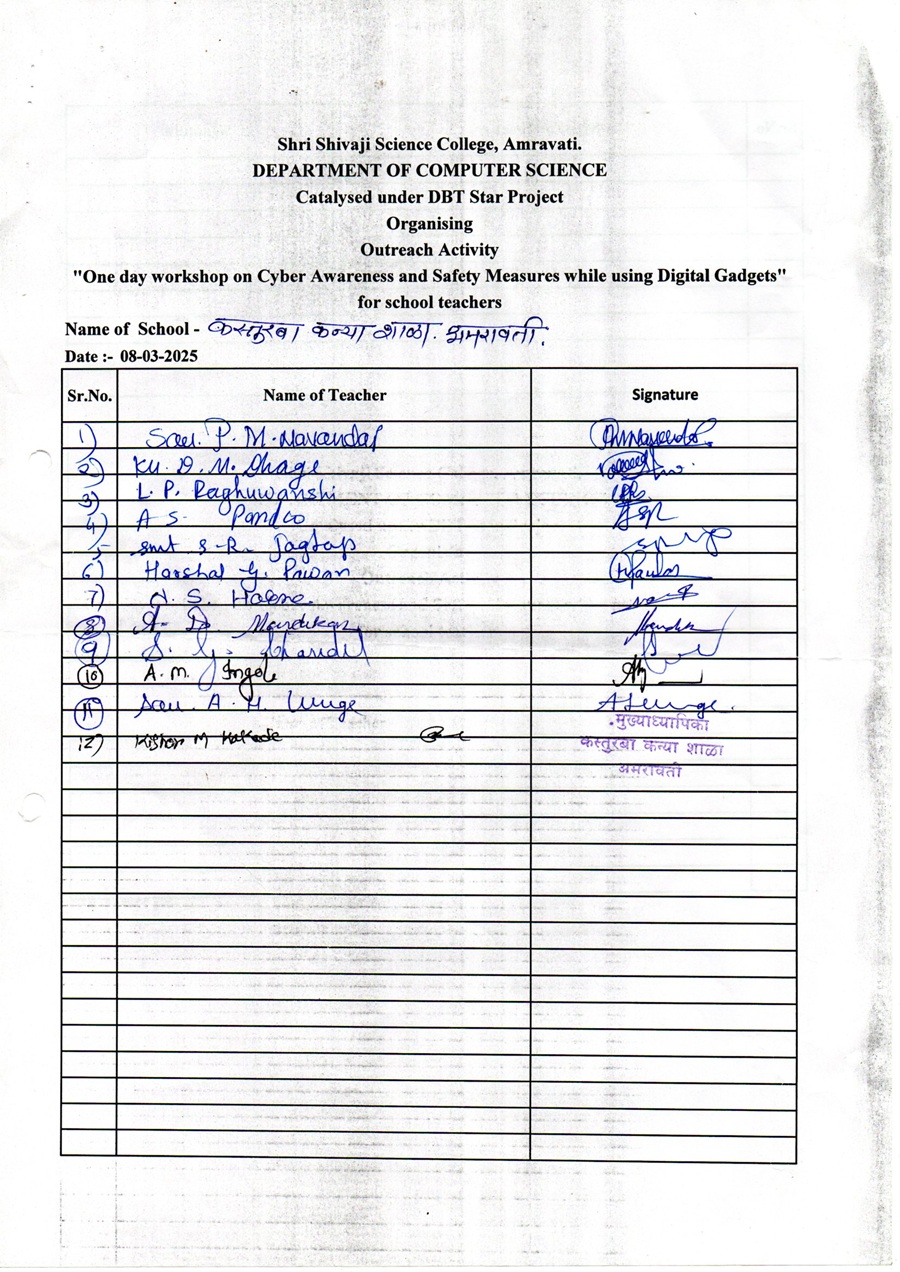 Shri Shivaji Science College, Amravati.
DEPARTMENT OF COMPUTER SCIENCE
Catalysed under DBT Star Project
Organising
Outreach Activity
"One day workshop on Cyber Awareness and Safety Measures while using Digital Gadgets"
for school teachers
Name of School - कस्तुरबा कन्या शाळा. अमरावती.
Date :- 08-03-2025
Sr.No. Name of Teacher Signature
1) Sau. P. M. Navandar
2) Ku. D. M. Dhage
3) L. P. Raghuwanshi
4) A S.
5- smt S. R. Jagtap
6) Harshal G. Pawan
7) S.
8) A. D.
9) S. G.
10) A. M. Ingole
11) Sau. A. H. Lunge
मुख्याध्यापिका
12) Kishor M Kakade
कस्तुरबा कन्या शाळा
अमरावती